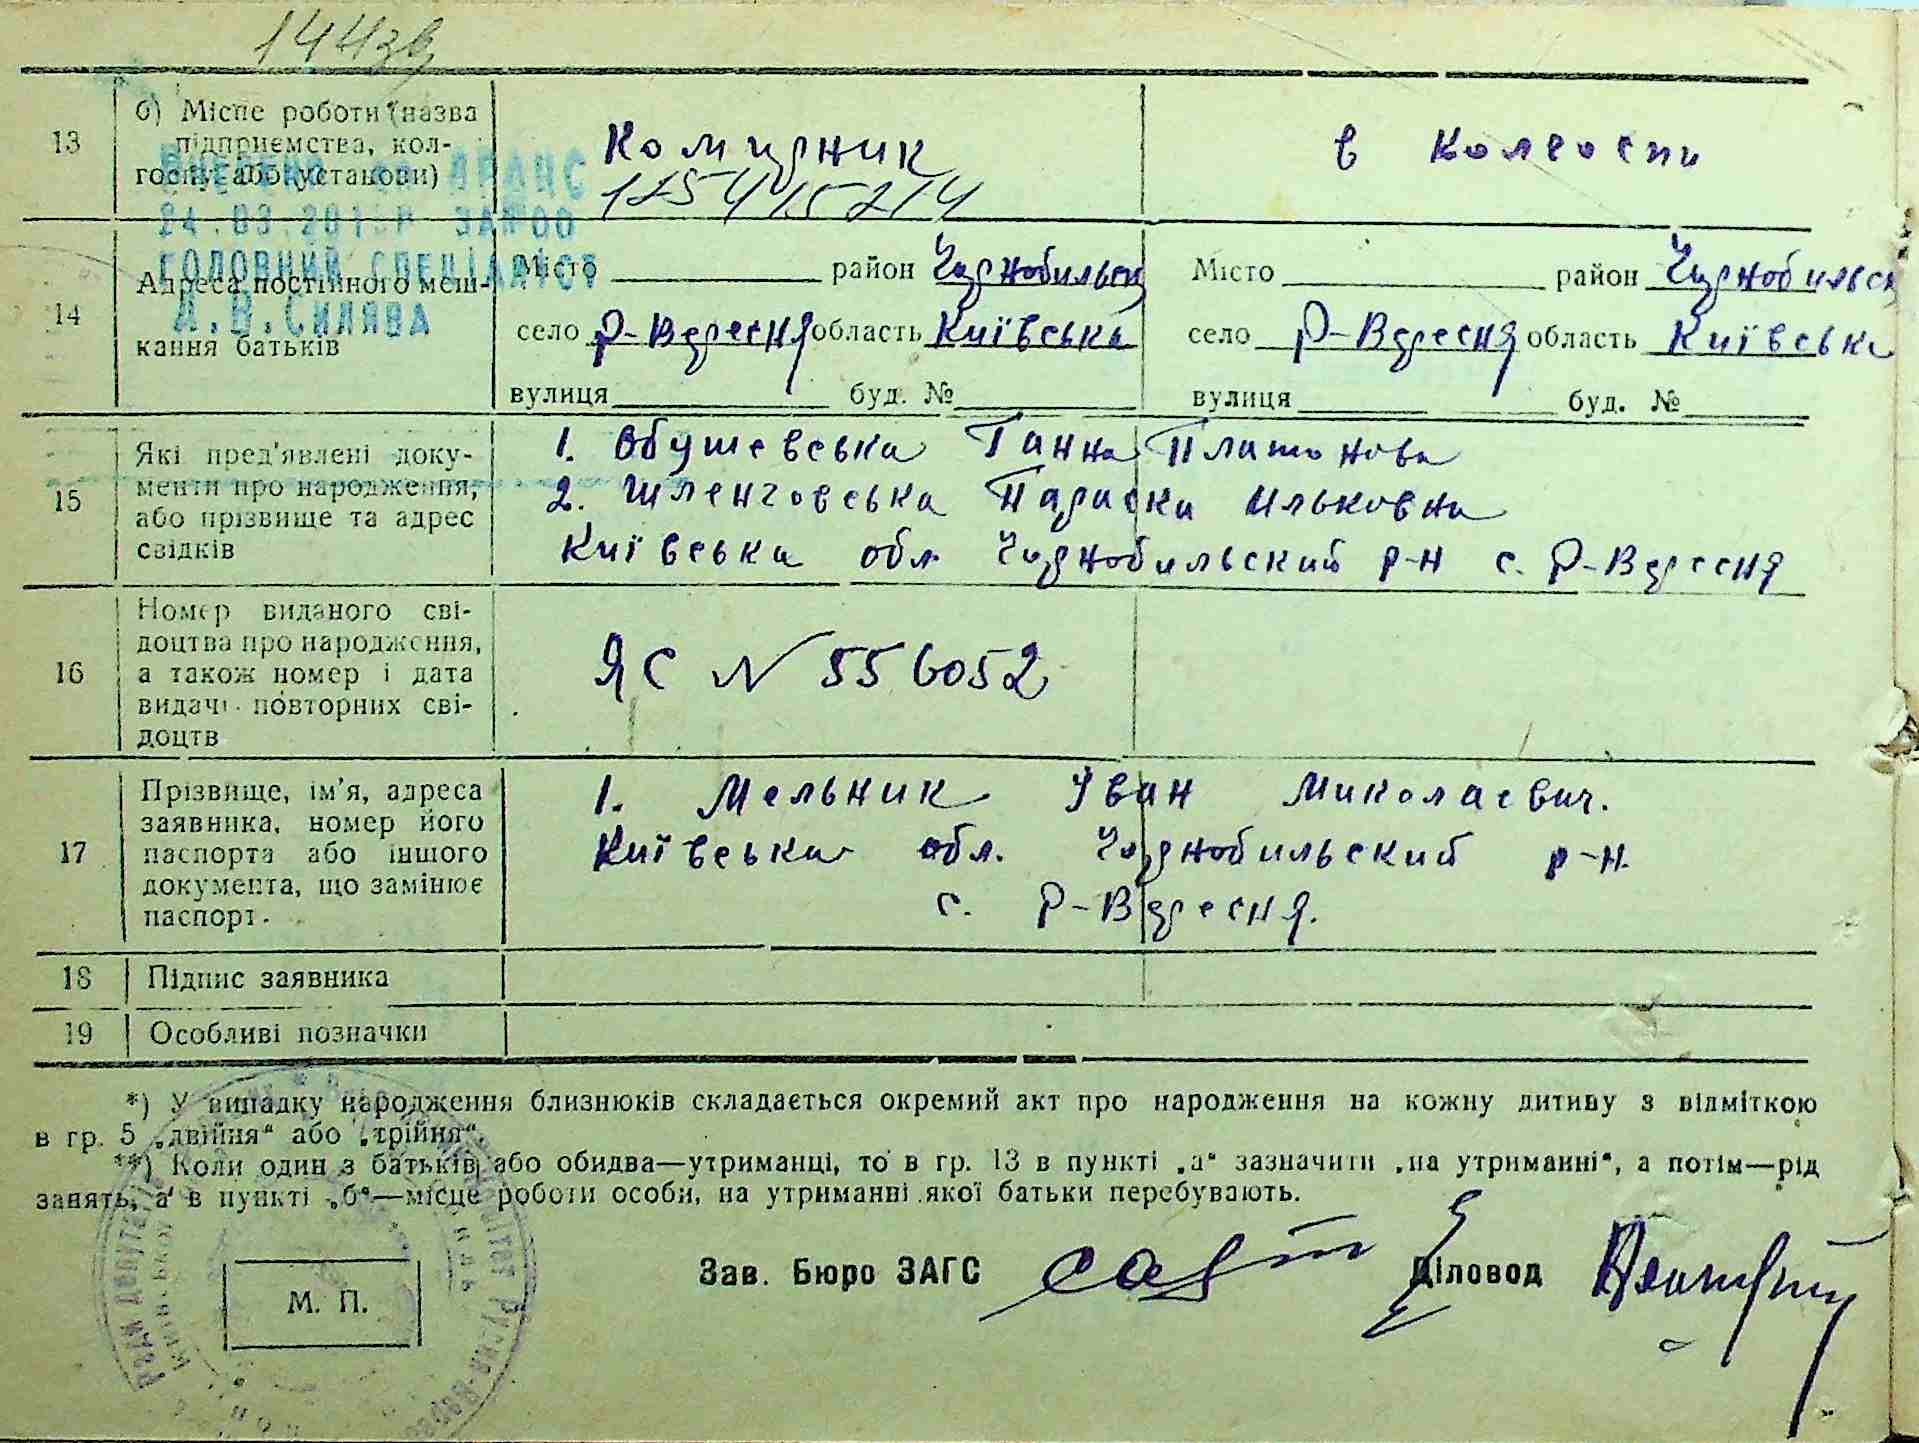 144зв
13
б) Місце роботи (назва підприємства, колгоспу або установи)
Комирник
1254415214
в колгоспи
ВНЕСЕНО ДО ДРАЦС
24.03.201
ГОЛОВНИЙ СПЕЦІАЛІСТ
А.В.Силява
14
Адреса постійного мешкання батьків
Місто район Чирнобильск
село Р-Вересня область Київська
вулиця буд. №
Місто район Чирнобильск
село Р-Вересня область Київська
вулиця буд. №
15
Які пред'явлені документи про народження, або прізвище та адрес свідків
1. Обушевська Ганна Платонова
2. Шленговська Параска Ильковна
Київська обл. Чирнобильский р-н с. Р-Вересня
16
Номер виданого свідоцтва про народження, а також номер і дата видачі повторних свідоцтв
ЯС N 556052
17
Прізвище, ім'я, адреса заявника, номер його паспорта або іншого документа, що замінює паспорт.
1. Мельник Іван Миколаевич.
Київська обл. Чирнобильский р-н.
с. Р-Вересня.
18
Підпис заявника
19
Особливі позначки
*) У випадку народження близнюків складається окремий акт про народження на кожну дитину з відміткою
в гр. 5 „двійня“ або „трійня“.
**) Коли один з батьків або обидва—утриманці, то в гр. 13 в пункті „а“ зазначити „на утриманні“, а потім—рід
занять, а в пункті „б“—місце роботи особи, на утриманні якої батьки перебувають.
Зав. Бюро ЗАГС
Діловод
М. П.